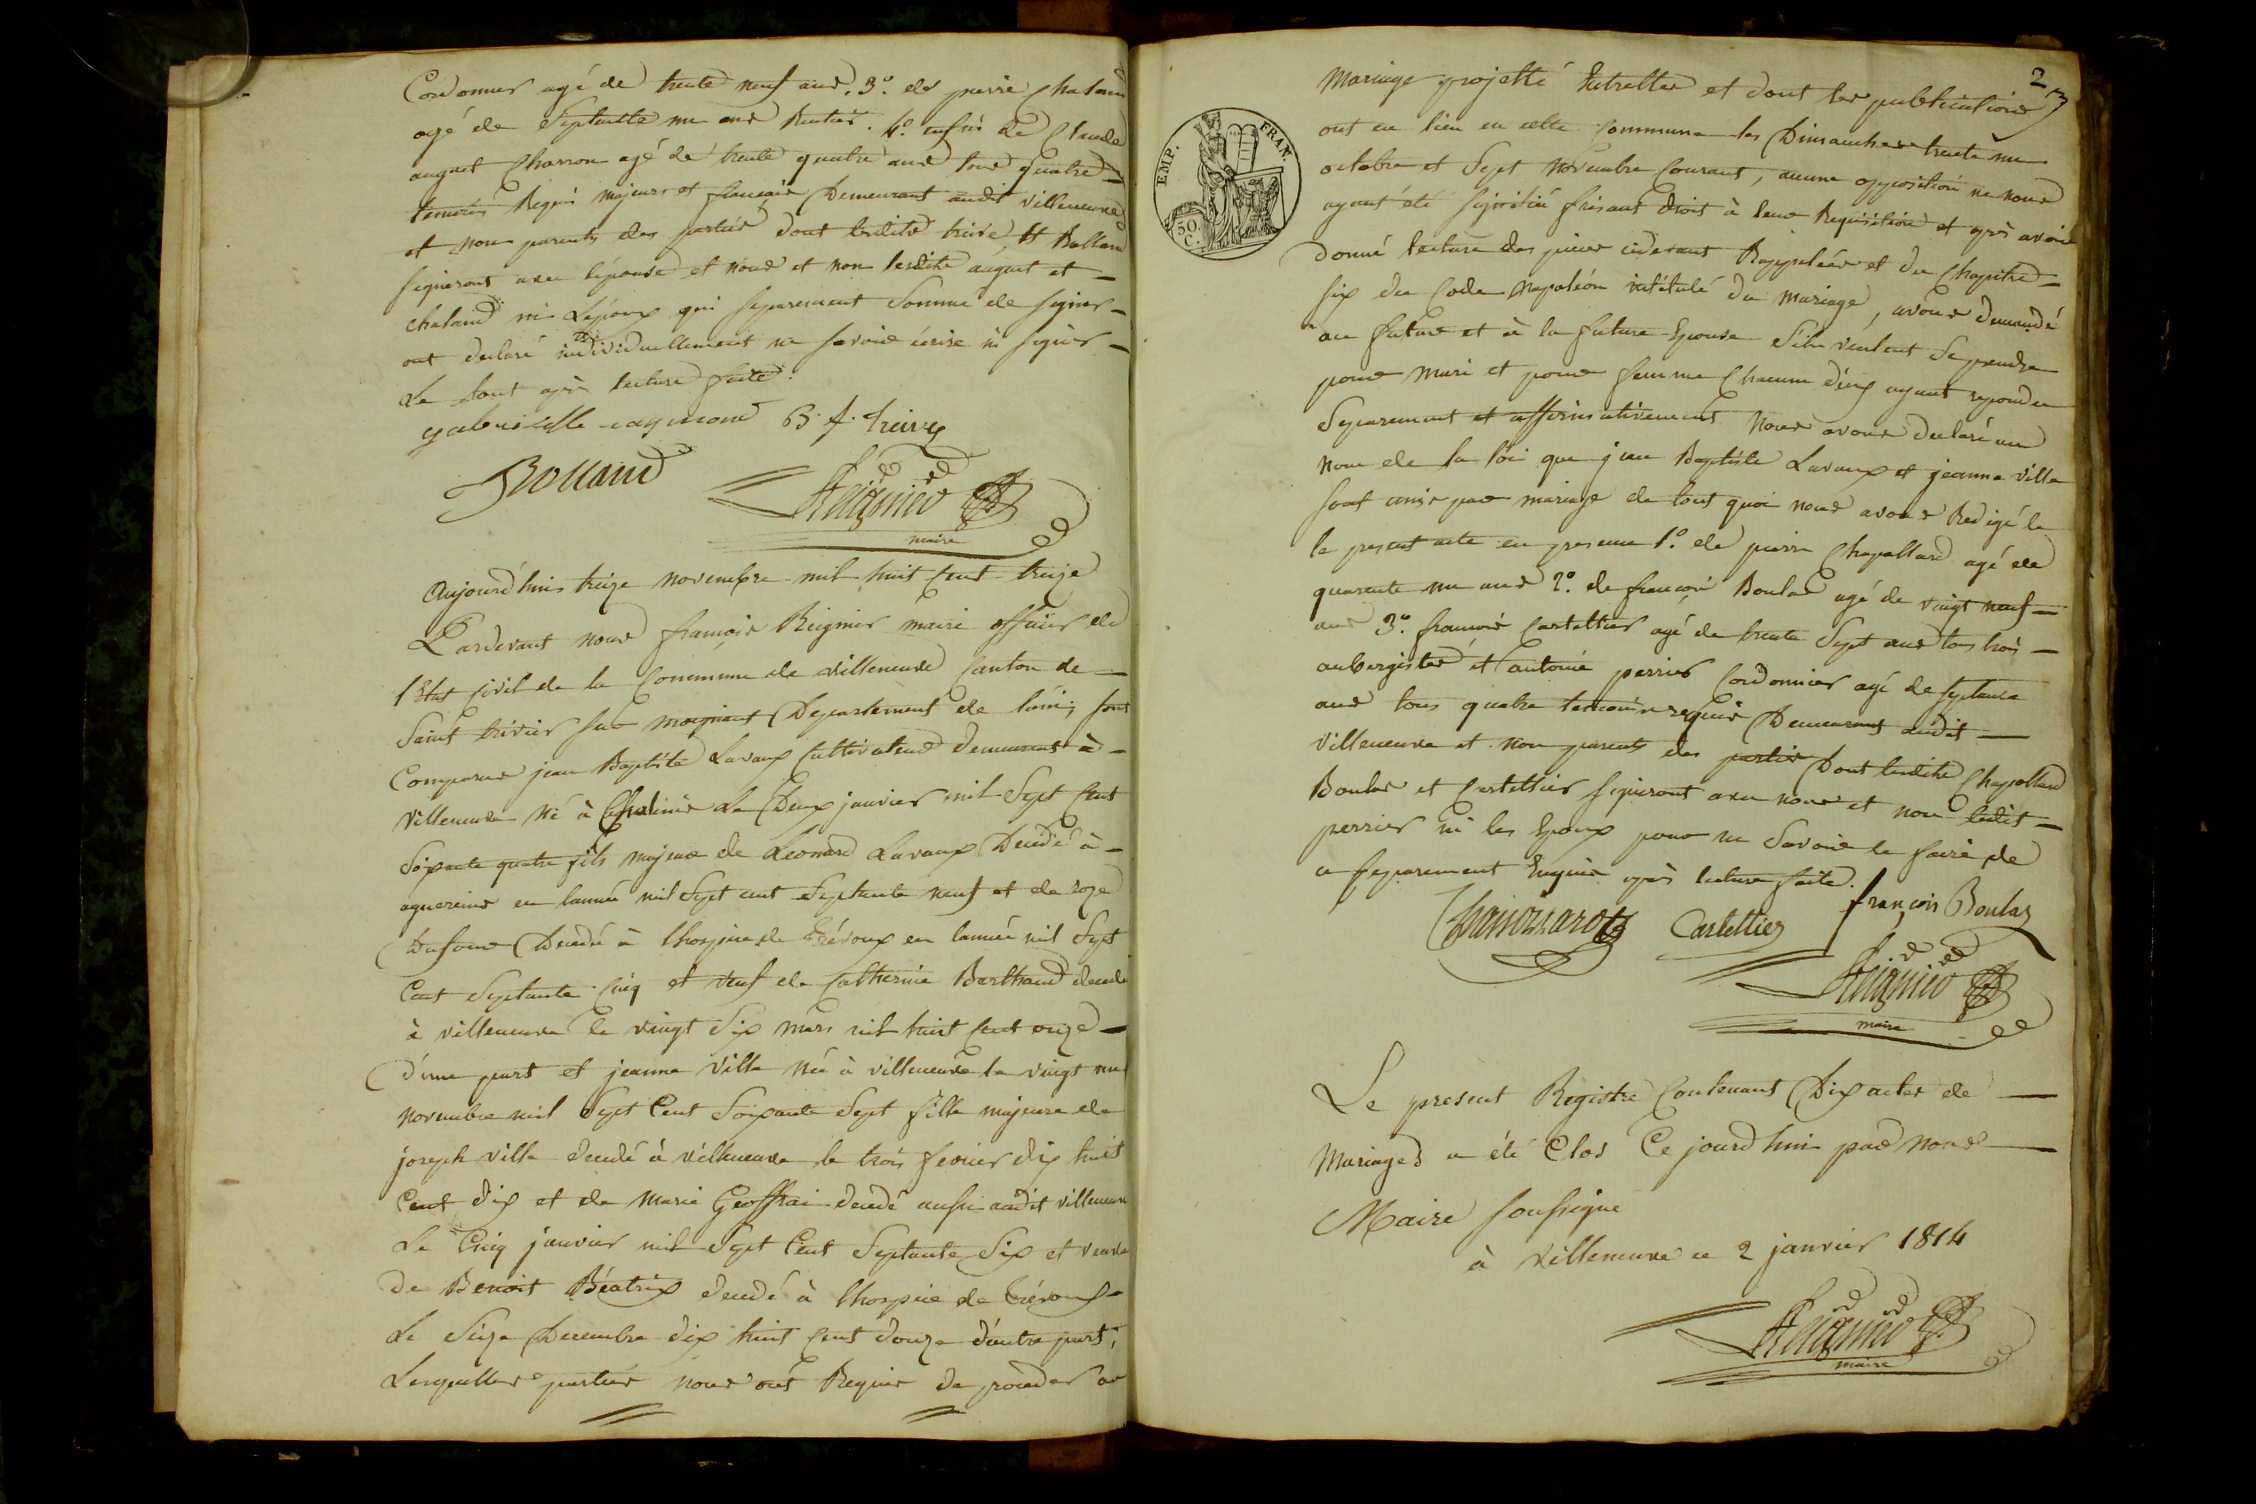 Cordonnier agé de trente neuf ans. 3º. de pierre Chaland
agé de Septante un ans Rentier. 4º. enfin de Claude
auguet Charron agé de trente quatre ans tous quatre
temoins Requis majeurs et francais Demeurant audit villeneuve
et non parents des parties dont lesdits treive et Rolland
signeront avec l'épouse et nous et non lesdits auguet et
chaland ni L'époux qui separement Sommé de signer
ont declaré individuellement ne savoir écrire ni signer
Le tout après lecture faite.
gabrielle raymond B. f. treive
Rolland
Reignier
maire
Aujourd'hui treize novembre mil huit Cent treize
Pardevant nous françois Reignier maire officier de
l'Etat Civil de la Commune de villeneuve Canton de
Saint trivier sur moignans Departement de lain, sont
Comparus jean Baptiste Lavaux Cultivateur demeurant à
villeneuve Né à le Deux janvier mil Sept Cent
Soixante quatre fils majeur de Leonard Lavaux Decedé à
en l'année mil Sept cent Septante neuf et de roze
Dufour Decedé à lhospice de trévoux en lannée mil Sept
Cent Septante Cinq et veuf de Catherine Berthaud decedé
à villeneuve le vingt Six mars mil huit Cent onze
d'une part et jeanne Ville Née à villeneuve le vingt un
novembre mil Sept Cent Soixante Sept fille majeure de
joseph ville decedé à villeneuve le trois fevrier dix huit
Cent dix et de Marie Geoffrai decedé aussi audit villeneuve
Le Cinq janvier mil Sept Cent Septante Six et veuve
de Benoit Béatrix decedé à lhospice de trévoux
Le Seize Decembre dix huit Cent douze d'autre part,
Lesquelles parties nous ont Requis de proceder au
2
EMP. FRAN.
50.
C.
Mariage projetté Entrelles et dont les publications
ont eu lieu en cette Commune les Dimanches trente un
octobre et Sept Novembre Courant, aucune opposition ne nous
ayant été signifiée faisant droit à leur Requisition et après avoir
donné lecture des pieces cidevant Rappelées et du Chapitre
six du Code Napoléon intitulé du Mariage, avons demandé
au futur et à la future Epouse S'ils veulent Se prendre
pour Mari et pour femme Chacun d'eux ayant repondu
Separement et affirmativement Nous avons declaré au
Nom de la loi que jean Baptiste Lavaux et jeanne Ville
sont unis par mariage de tout quoi nous avons Redigé le
le present acte en presence 1º. de pierre Chapollard agé de
quarente un ans 2º. de françois Boulas agé de vingt neuf
ans 3º. francois Castettier agé de trente Sept ans tous trois
aubergistes et antoine perrier Cordonnier agé de septante
ans tous quatre temoins requis Demeurant audit
villeneuve et non parents des parties Dont lesdits Chapollard
Boulas et Castettier signeront avec nous et non ledit
perrier ni les Epoux pour ne Savoir le faire de
ce separement Enquis après lecture faite.
Castettier françois Boulas
Reignier
maire
Le present Registre Contenant Dix actes de
Mariages a été Clos Ce jourd'hui par nous
Maire soussigné
à villeneuve ce 2 janvier 1814
Reignier
maire